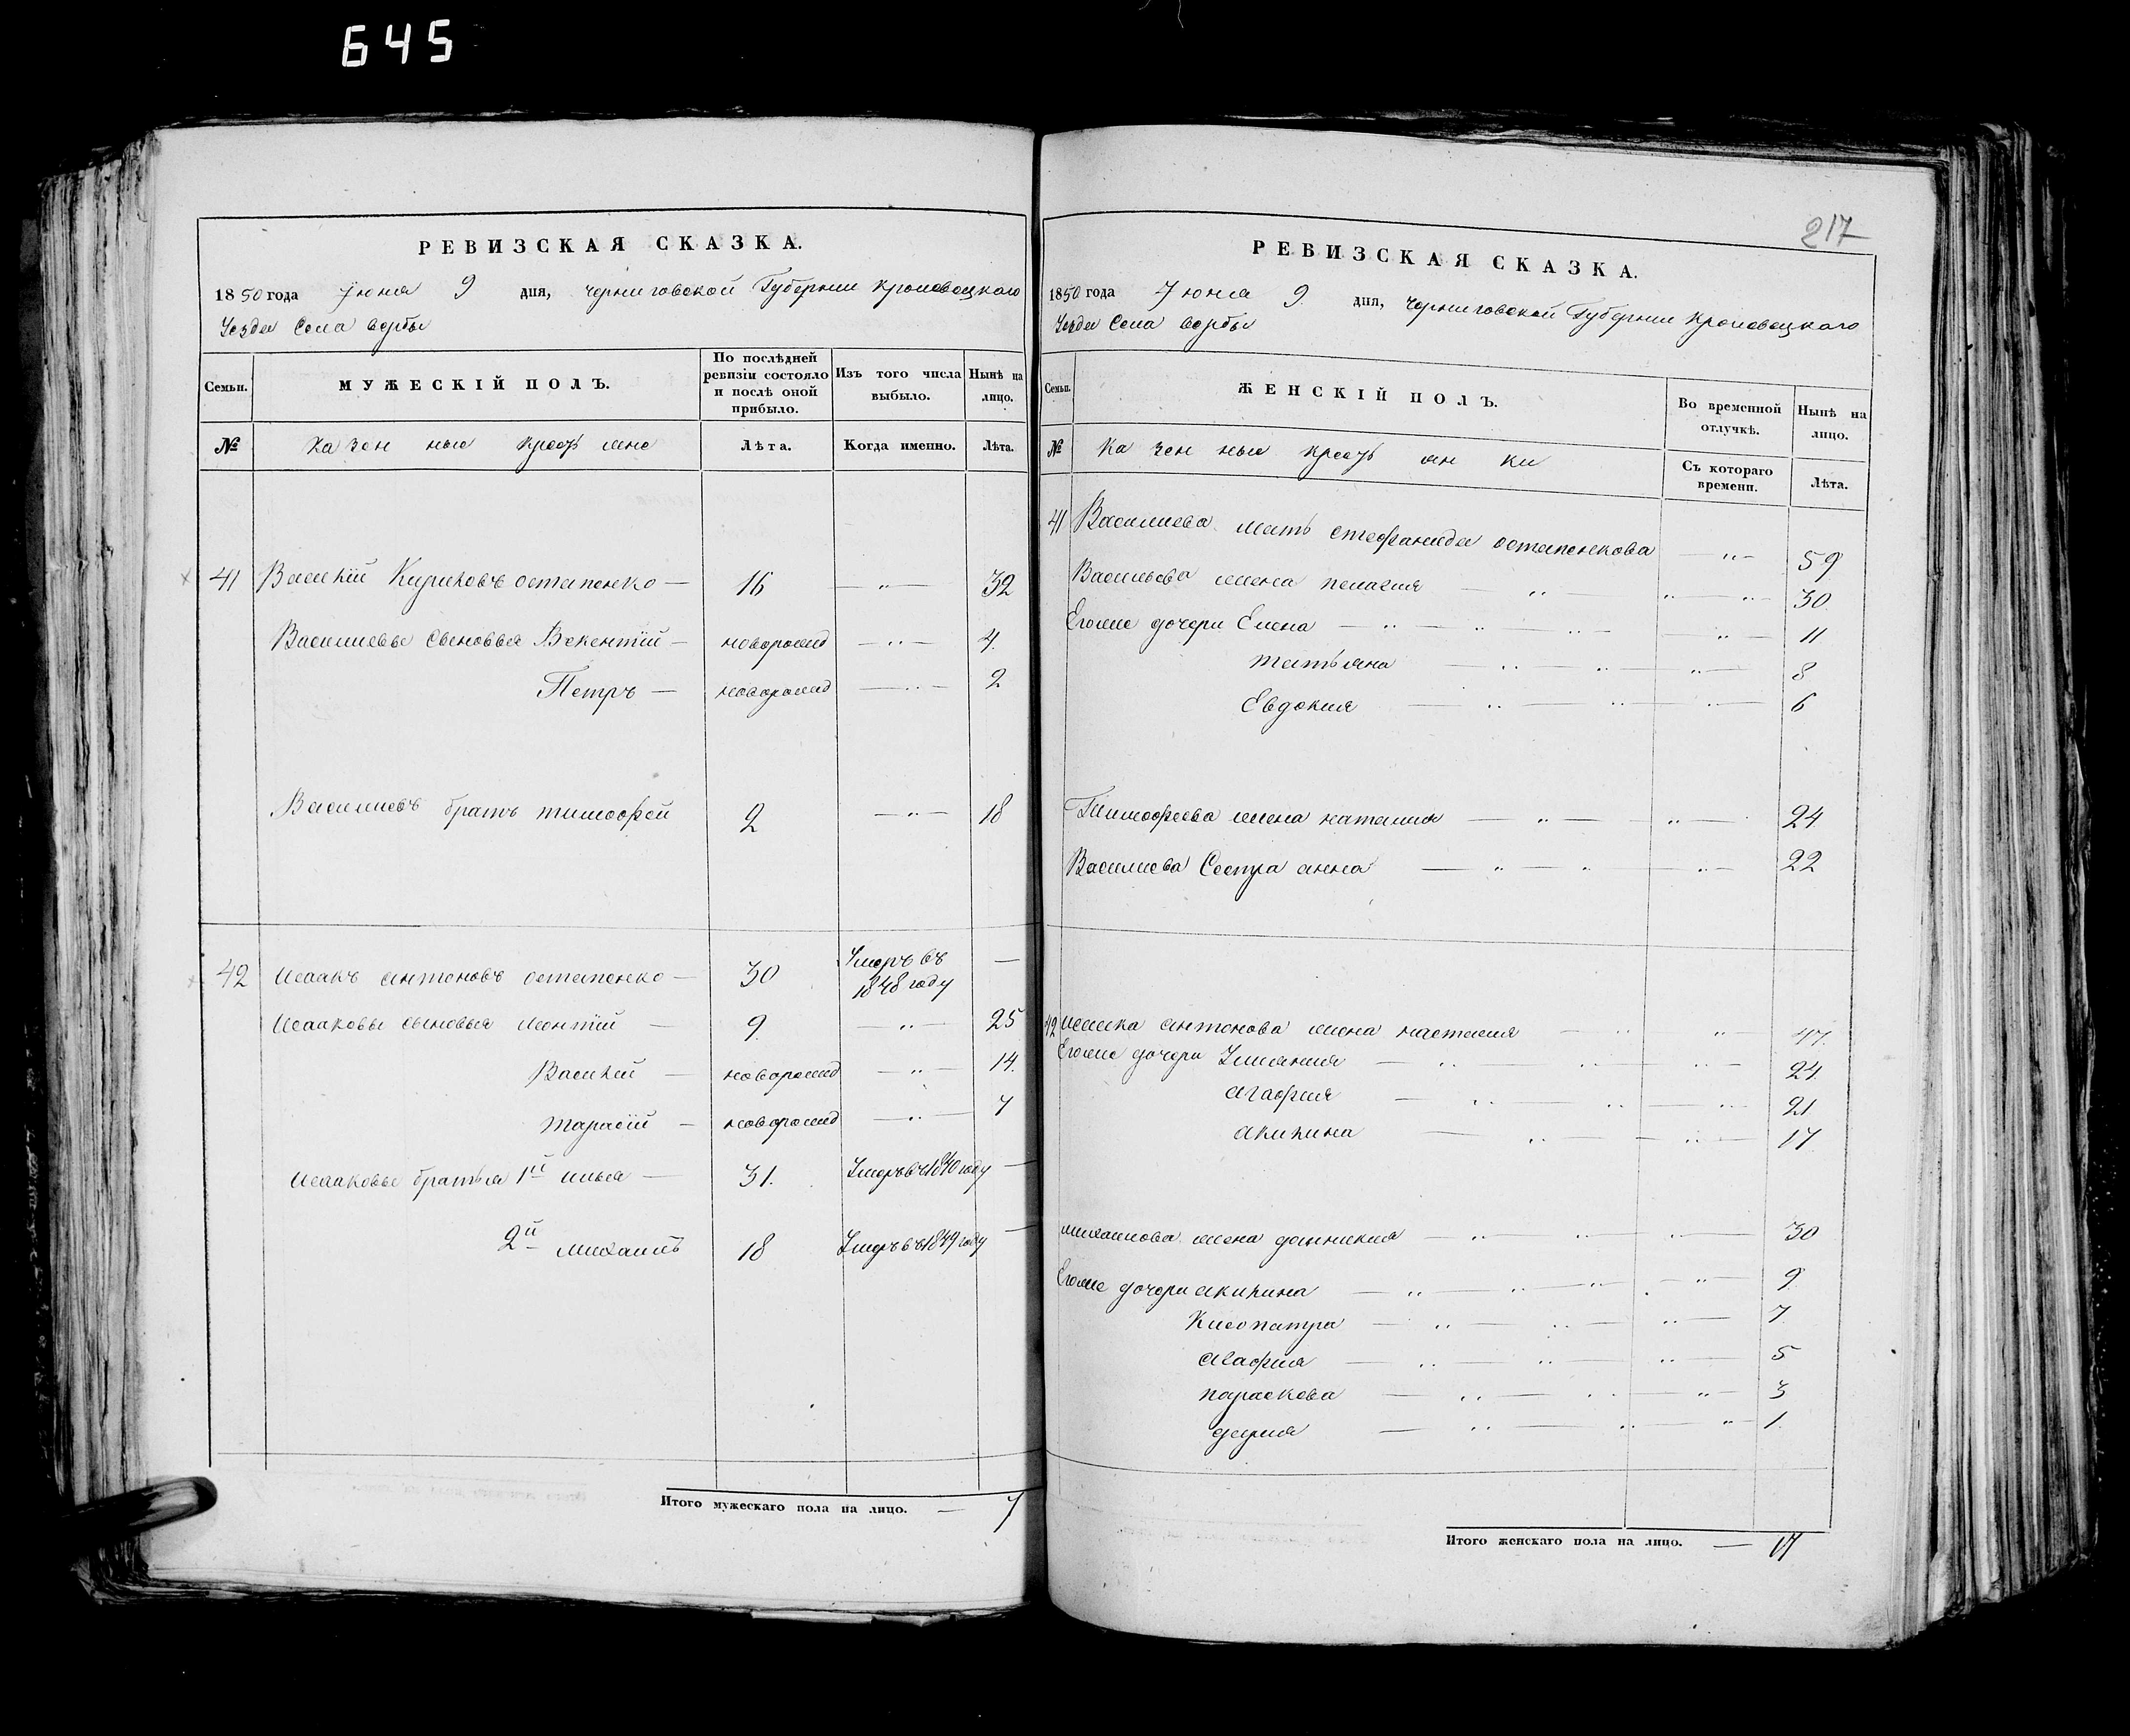 645
РЕВИЗСКАЯ СКАЗКА.
1850 года Июня 9 дня, черниговской Губернии Кролевецкого
Уезда Села вербы
Семьи.
МУЖЕСКІЙ ПОЛЪ.
По послѣдней ревизіи состояло и послѣ оной прибыло.
Изъ того числа выбыло.
Нынѣ на лицо.
№
Казенные крестьяне
Лѣта.
Когда именно.
Лѣта.
41 Василій Кириловъ остапенко — 16 — „ — 32
Василиевы сыновья Викентій — новорожд — „ — 4.
Петръ — новорожд — „ — 2
Василиевъ братъ тимофей 2 — „ — 18
42 Исаакъ антоновъ остапенко — 30 Умеръ въ 1848 году —
Исааковы сыновья леонтій — 9. — „ — 25
Василій — новорожд — „ — 14.
тарасій — новорожд — „ — 7
Исааковы братья 1й илья — 31. Умеръ въ 1840 году —
2й михаилъ 18 Умеръ въ 1849 году —
Итого мужескаго пола на лицо. — 7
217
РЕВИЗСКАЯ СКАЗКА.
1850 года Июня 9. дня, черниговской Губернии Кролевецкого
Уезда Села вербы
Семьи.
ЖЕНСКІЙ ПОЛЪ.
Во временной отлучкѣ.
Нынѣ на лицо.
№
Казенные крестьянки
Съ котораго времени.
Лѣта.
41 Василиева мать стефанида остапенкова — „ — 59
Васильева жена пелагия — „ — „ — „ — 30.
Егоже дочери Елена — „ — „ — „ — „ — 11
татьяна — „ — „ — „ — 8
Евдокия — „ — „ — „ — 6
Тимофеева жена наталия — „ — „ — 24.
Василиева Сестра анна — „ — „ — „ — 22
42 Исаака антонова жена настасия — „ „ — 47.
Егоже дочери Улияния — „ — „ — „ — 24.
агафия — „ — „ — „ — 21
акилина — „ — „ — 17
михаилова жена домникия — „ — „ — „ — 30
Егоже дочери акилина — „ — „ — „ — „ — 9.
Клеопатра — „ — „ — „ — 7.
агафия — „ — „ — „ — 5
параскева — „ — „ — „ — 3
дария — „ — „ — „ — 1.
Итого женскаго пола на лицо. — 17